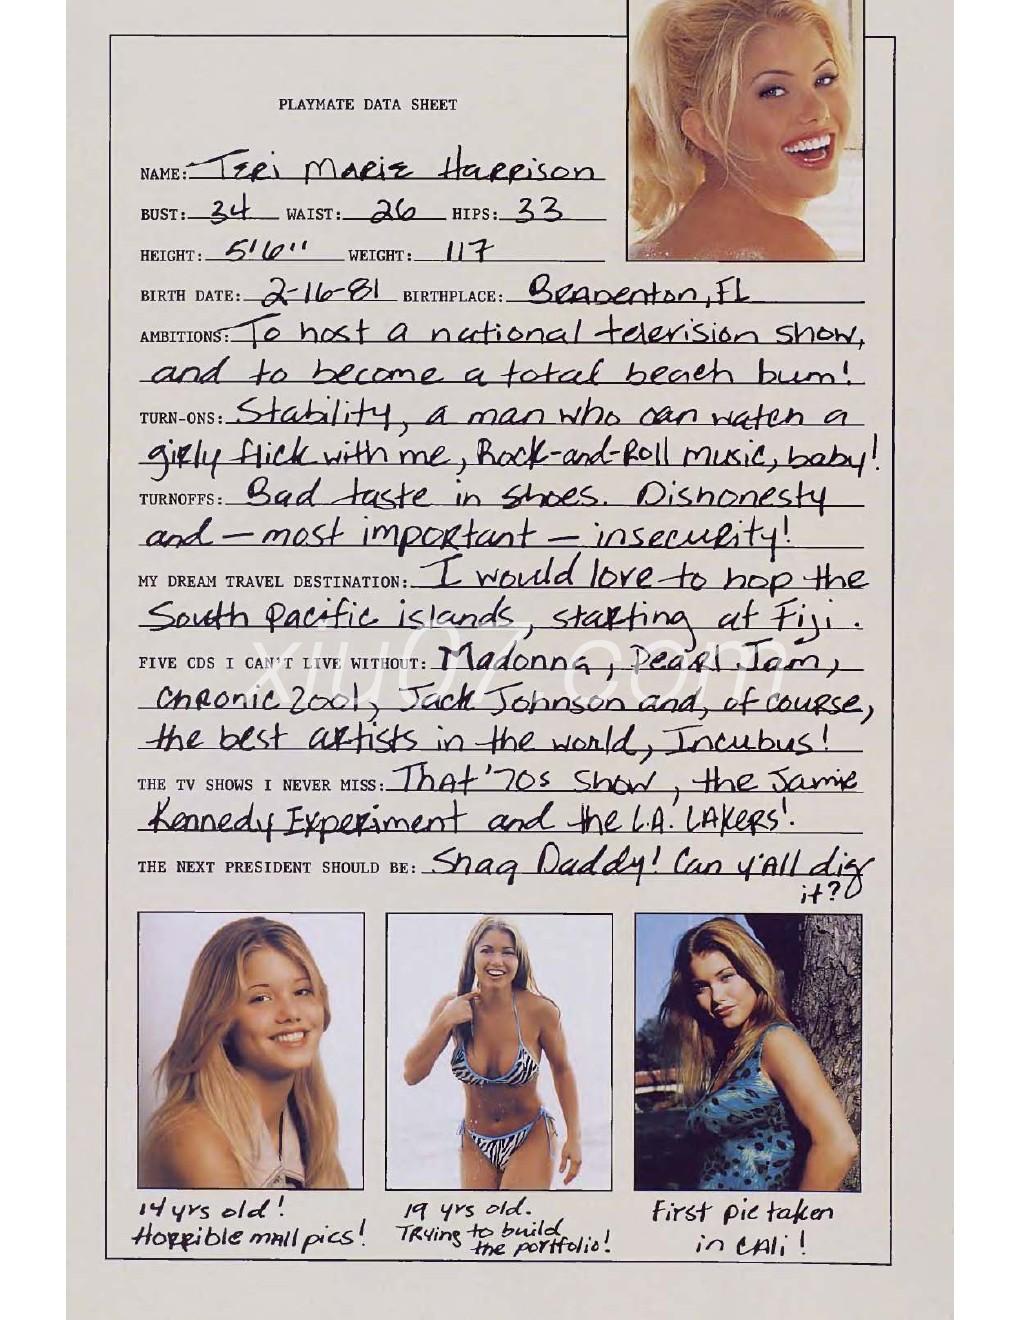 PLAYMATE DATA SHEET
NAME: Teri Marie Harrison
BUST: 34 WAIST: 26 HIPS: 33
HEIGHT: 5'6" WEIGHT: 117
BIRTH DATE: 2-16-81 BIRTHPLACE: Bradenton, FL
AMBITIONS: To host a national television show,
and to become a total beach bum!
TURN-ONS: Stability, a man who can watch a
girly flick with me, Rock-and-Roll music, baby!
TURNOFFS: Bad taste in shoes. Dishonesty
and — most important — insecurity!
MY DREAM TRAVEL DESTINATION: I would love to hop the
South Pacific islands, starting at Fiji.
xiu07.com
FIVE CDS I CAN'T LIVE WITHOUT: Madonna, Pearl Jam,
Chronic 2001, Jack Johnson and, of course,
the best artists in the world, Incubus!
THE TV SHOWS I NEVER MISS: That '70s Show, the Jamie
Kennedy Experiment and the L.A. Lakers!
THE NEXT PRESIDENT SHOULD BE: Shaq Daddy! Can y'all dig
it?
14 yrs old!
Horrible mall pics!
19 yrs old.
Trying to build
the portfolio!
First pic taken
in Cali!